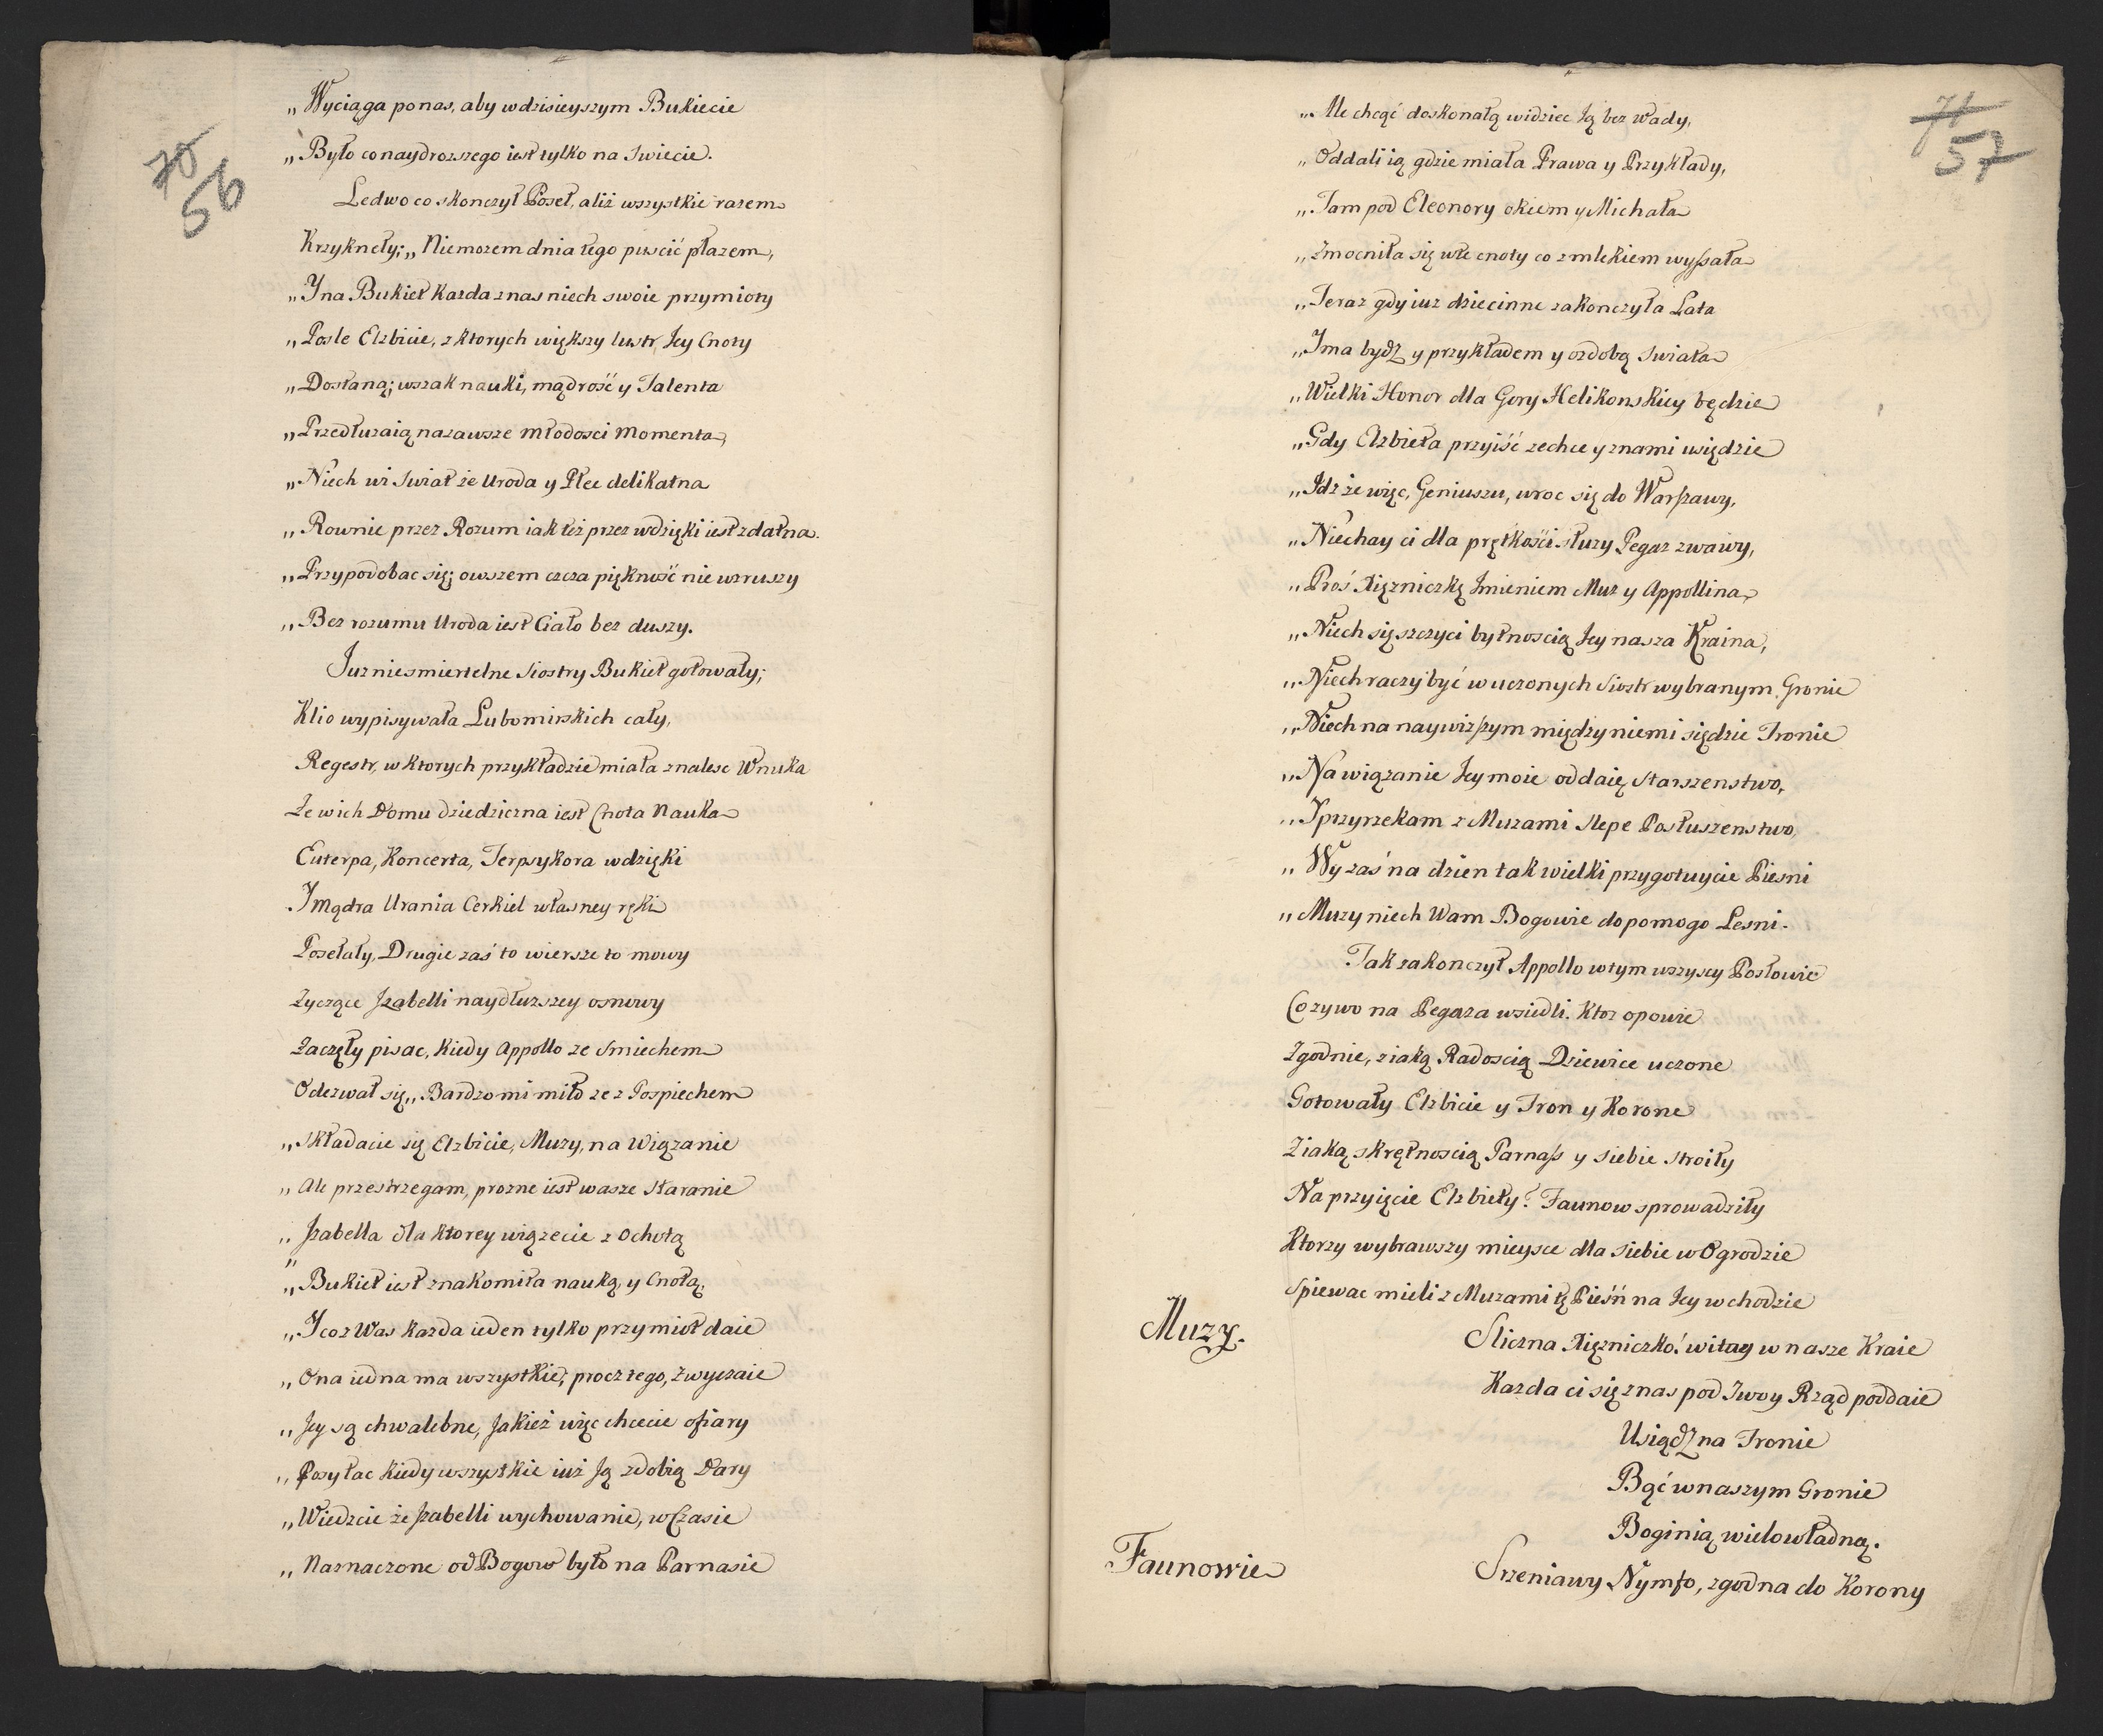 70
56
„ Wyciąga po nas, aby w dzisieyszym Bukiecie
„ Było co naydrozszego iest tylko na Swiecie.
Ledwo co skonczył Poseł, aliż wszystkie razem
Krzykneły; „ Niemozem dnia tego puscić płazem,
„ Y na Bukiet Kazda z nas niech swoie przymioty
„ Posle Elzbicie, z ktorych większy lustr Jey Cnoty
„ Dostaną; wszak nauki, mądrość y Talenta
„ Przedłuzaią nazawsze młodosci Momenta,
„ Niech wi Swiat że Uroda y Płec delikatna
„ Rownie przez Rozum iak też przez wdzięki iest zdatna.
„ Przypodobac się; owszem czcza piękność nie wzruszy
„ Bez rozumu Uroda iest Ciało bez duszy.
Juz niesmiertelne Siostry Bukiet gotowały;
Klio wypisywała Lubomirskich cały,
Regestr, w ktorych przykładzie miała znalesc Wnuka
Ze w ich Domu dziedziczna iest Cnota Nauka
Euterpa, Koncerta, Terpsykora wdzięki
Y mądra Urania Cerkiel własney ręki
Posełały, Drugie zaś to wiersze to mowy
Zyczące Jzabelli naydłuzszey osnowy
Zaczęły pisac, Kiedy Appollo ze Smiechem
Odezwał się „ Bardzo mi miło ze z Pospiechem
„ Składacie się Elzbicie, Muzy, na Wiązanie
„ Ale przestrzegam, prozne iest wasze Staranie
„ Jzabella dla ktorey wiązecie z Ochotą
„ Bukiet iest znakomita nauką, y Cnotą,
„ Y co z Was kazda ieden tylko przymiot daie
„ Ona iedna ma wszystkie; procz tego, Zwyczaie
„ Jey są chwalebne, Jakież więc chcecie ofiary
„ Posyłac kiedy wszystkie iuż Ją zdobią Dary
„ Wiedzcie że Jzabelli wychowanie, w Czasie
„ Naznaczone od Bogow było na Parnasie
71
57
„ Ale chcąć doskonałą widziec Ją bez Wady,
„ Oddali ią gdzie miała Prawa y Przykłady,
„ Tam pod Eleonory okiem y Michała
„ Zmocniła się w te cnoty co z mlekiem wyssała
„ Teraz gdy iuz dziecinne zakonczyła Lata
„ Y ma bydź y przykładem y ozdobą Swiata
„ Wielki Honor dla Gory Helikonskiey będzie
„ Gdy Elzbieta przyiść zechce y z nami usiędzie
„ Jdz że więc, Geniuszu, wroc się do Warszawy,
„ Niechay ci dla prętkości służy Pegaz zwawy,
„ Proś Xięzniczkę Jmieniem Muz y Appollina,
„ Niech się szczyci bytnoscią Jey nasza Kraina,
„ Niech raczy być w uczonych Siostr wybranym Gronie
„ Niech na naywizszym między niemi siędzie Tronie
„ Na wiązanie Jey moie oddaię Starszenstwo,
„ Y przyrzekam z Muzami slepe Posłuszenstwo,
„ Wy zaś na dzien tak wielki przygotuycie Piesni
„ Muzy niech Wam Bogowie dopomogo Lesni.
Tak zakonczył Appollo w tym wszyscy Posłowie
Co zywo na Pegaza wsiedli. Ktoz opowie
Zgodnie, z iaką Radoscią Dziewice uczone
Gotowały Elzbicie y Tron y Korone
Z iaką skrętnoscią Parnass y siebie stroiły
Na przyięcie Elzbiety? Faunow sprowadziły
Ktorzy wybrawszy mieysce dla siebie w Ogrodzie
Spiewac mieli z Muzami tę Pieśń na Jey wchodzie
Muzy.
Sliczna Xięzniczko! witay w nasze Kraie
Kazda ci się z nas pod Twoy Rząd poddaie
Usiądź na Tronie
Bąć w naszym Gronie
Boginią wielowładną.
Faunowie
Srzeniawy Nymfo, zgodna do Korony